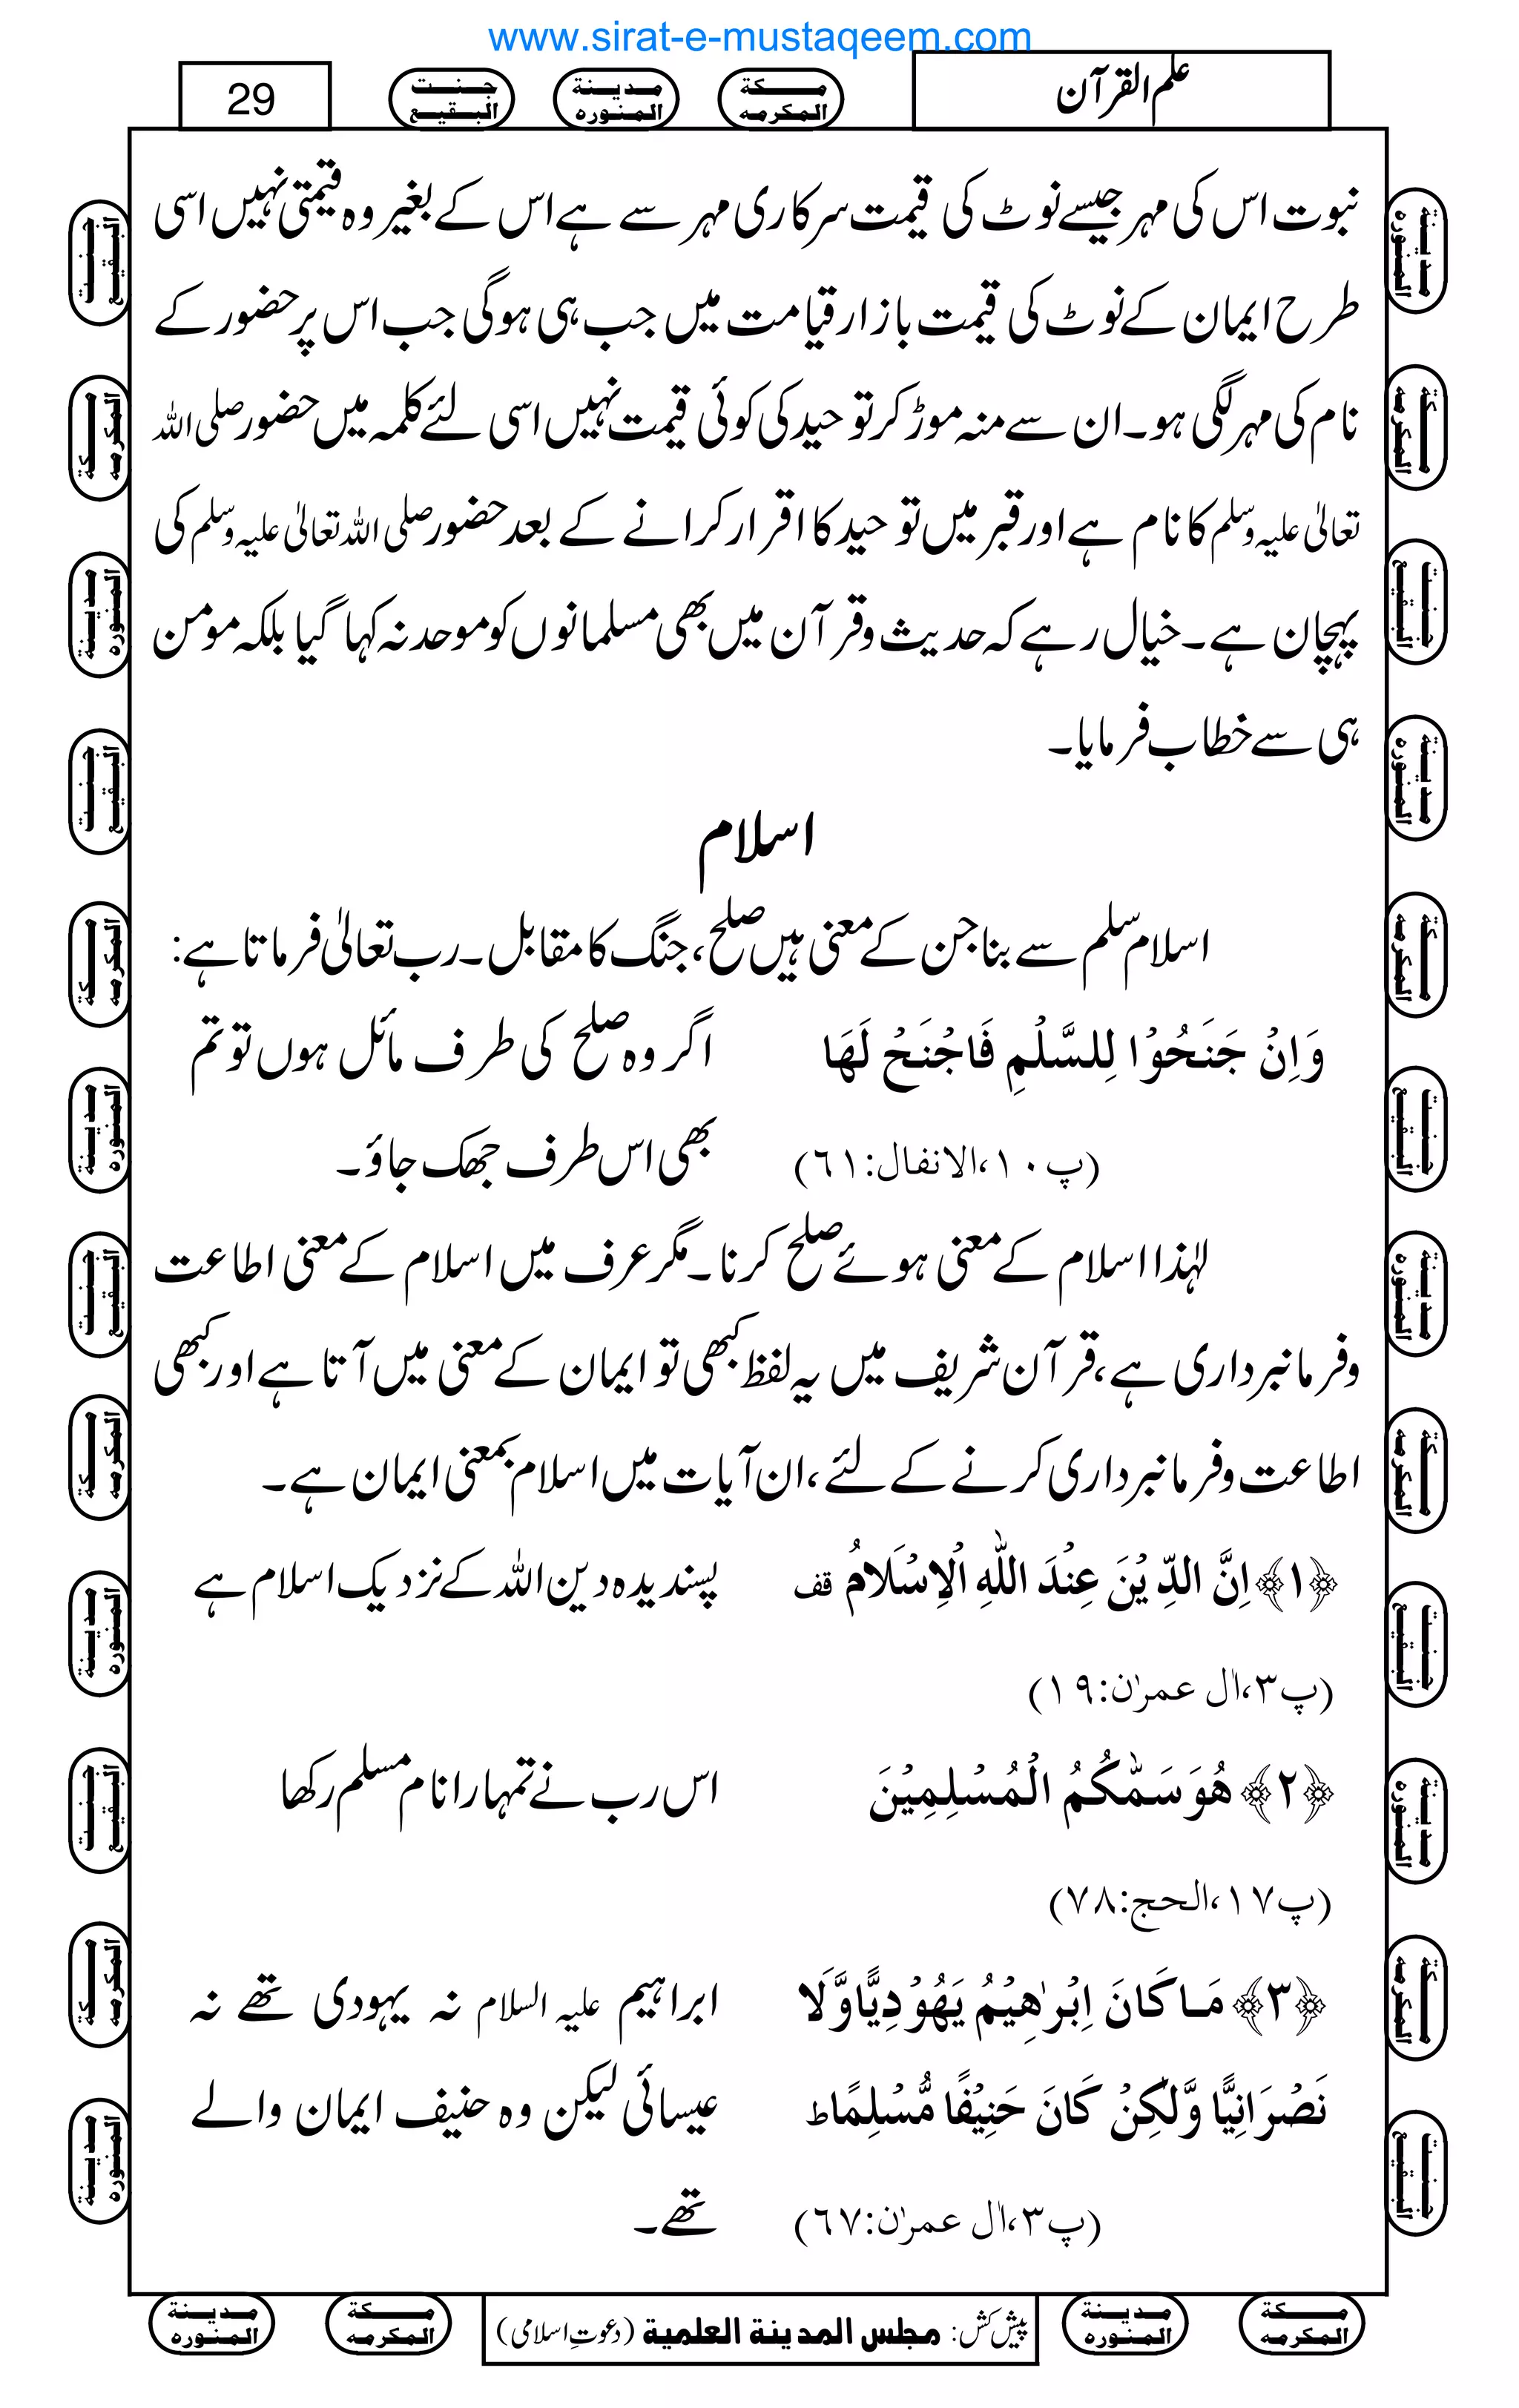 www.sirat-e-mustaqeem.com
علم القرآن
مكة المكرمه
مدينة المنوره
جنت البقيع
29
نبوت اس کی مہر جیسے نوٹ کی قیمت سرکاری مہر سے ہے اس کے بغیر وہ قیمتی نہیں اسی
طرح ایمان کے نوٹ کی قیمت بازار قیامت میں جب ہی ہوگی جب اس پر حضور کے
نام کی مہر لگی ہو۔ ان سے منہ موڑ کر توحید کی کوئی قیمت نہیں اسی لئے کلمہ میں حضور صلی اللہ
تعالیٰ علیہ وسلم کا نام ہے اور قبر میں توحید کا اقرار کرانے کے بعد حضور صلی اللہ تعالیٰ علیہ وسلم کی
پہچان ہے۔ خیال رہے کہ حدیث وقرآن میں بھی مسلمانوں کو موحد نہ کہا گیا بلکہ مومن
ہی سے خطاب فرمایا۔
اسلام
اسلام سلم سے بنا جن کے معنی ہیں صلح، جنگ کا مقابل۔ رب تعالیٰ فرماتا ہے:
وَاِنْ جَنَحُوْا لِلسَّلْمِ فَاجْنَحْ لَهَا
(پ۱۰،الانفال:٦١)
اگر وہ صلح کی طرف مائل ہوں تو تم
بھی اس طرف جھک جاؤ۔
لہٰذا اسلام کے معنی ہوئے صلح کرنا۔ مگر عرف میں اسلام کے معنی اطاعت
وفرمانبرداری ہے، قرآن شریف میں یہ لفظ کبھی تو ایمان کے معنی میں آتا ہے اور کبھی
اطاعت وفرمانبرداری کرنے کے لئے، ان آیات میں اسلام بمعنی ایمان ہے۔
﴿۱﴾ اِنَّ الدِّيْنَ عِنْدَ اللّٰهِ الْاِسْلَامُ قف
(پ۳،اٰل عمرٰن:۱۹)
پسندیدہ دین اللہ کے نزدیک اسلام ہے
﴿۲﴾ هُوَ سَمّٰكُمُ الْمُسْلِمِيْنَ
(پ۱۷،الحج:۷۸)
اس رب نے تمہارا نام مسلم رکھا
﴿۳﴾ مَا كَانَ اِبْرٰهِيْمُ يَهُوْدِيًّا وَّلَا
نَصْرَانِيًّا وَّلٰكِنْ كَانَ حَنِيْفًا مُّسْلِمًا ط
(پ۳،اٰل عمرٰن:٦٧)
ابراہیم علیہ السلام نہ یہودی تھے نہ
عیسائی لیکن وہ حنیف ایمان والے
تھے۔
پیش کش: مجلس المدينة العلمية (دعوتِ اسلامی)